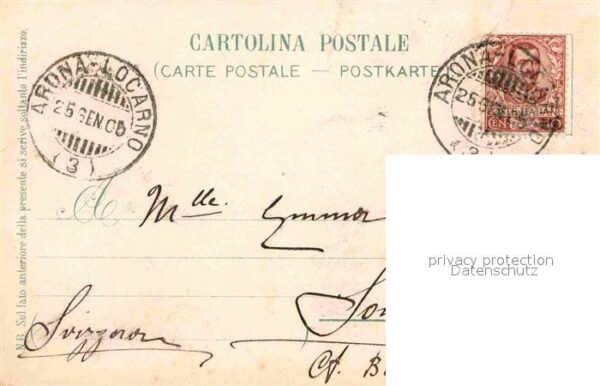 CARTOLINA POSTALE
(CARTE POSTALE — POSTKARTE
ARONA-LOCARNO
25 GEN
(3)
ARONA-LOCARNO
25 GEN
(3)
N.B. Sul lato anteriore della presente si scrive soltanto l'indirizzo.
A Mlle. Emma
Svizzera
privacy protection
Datenschutz